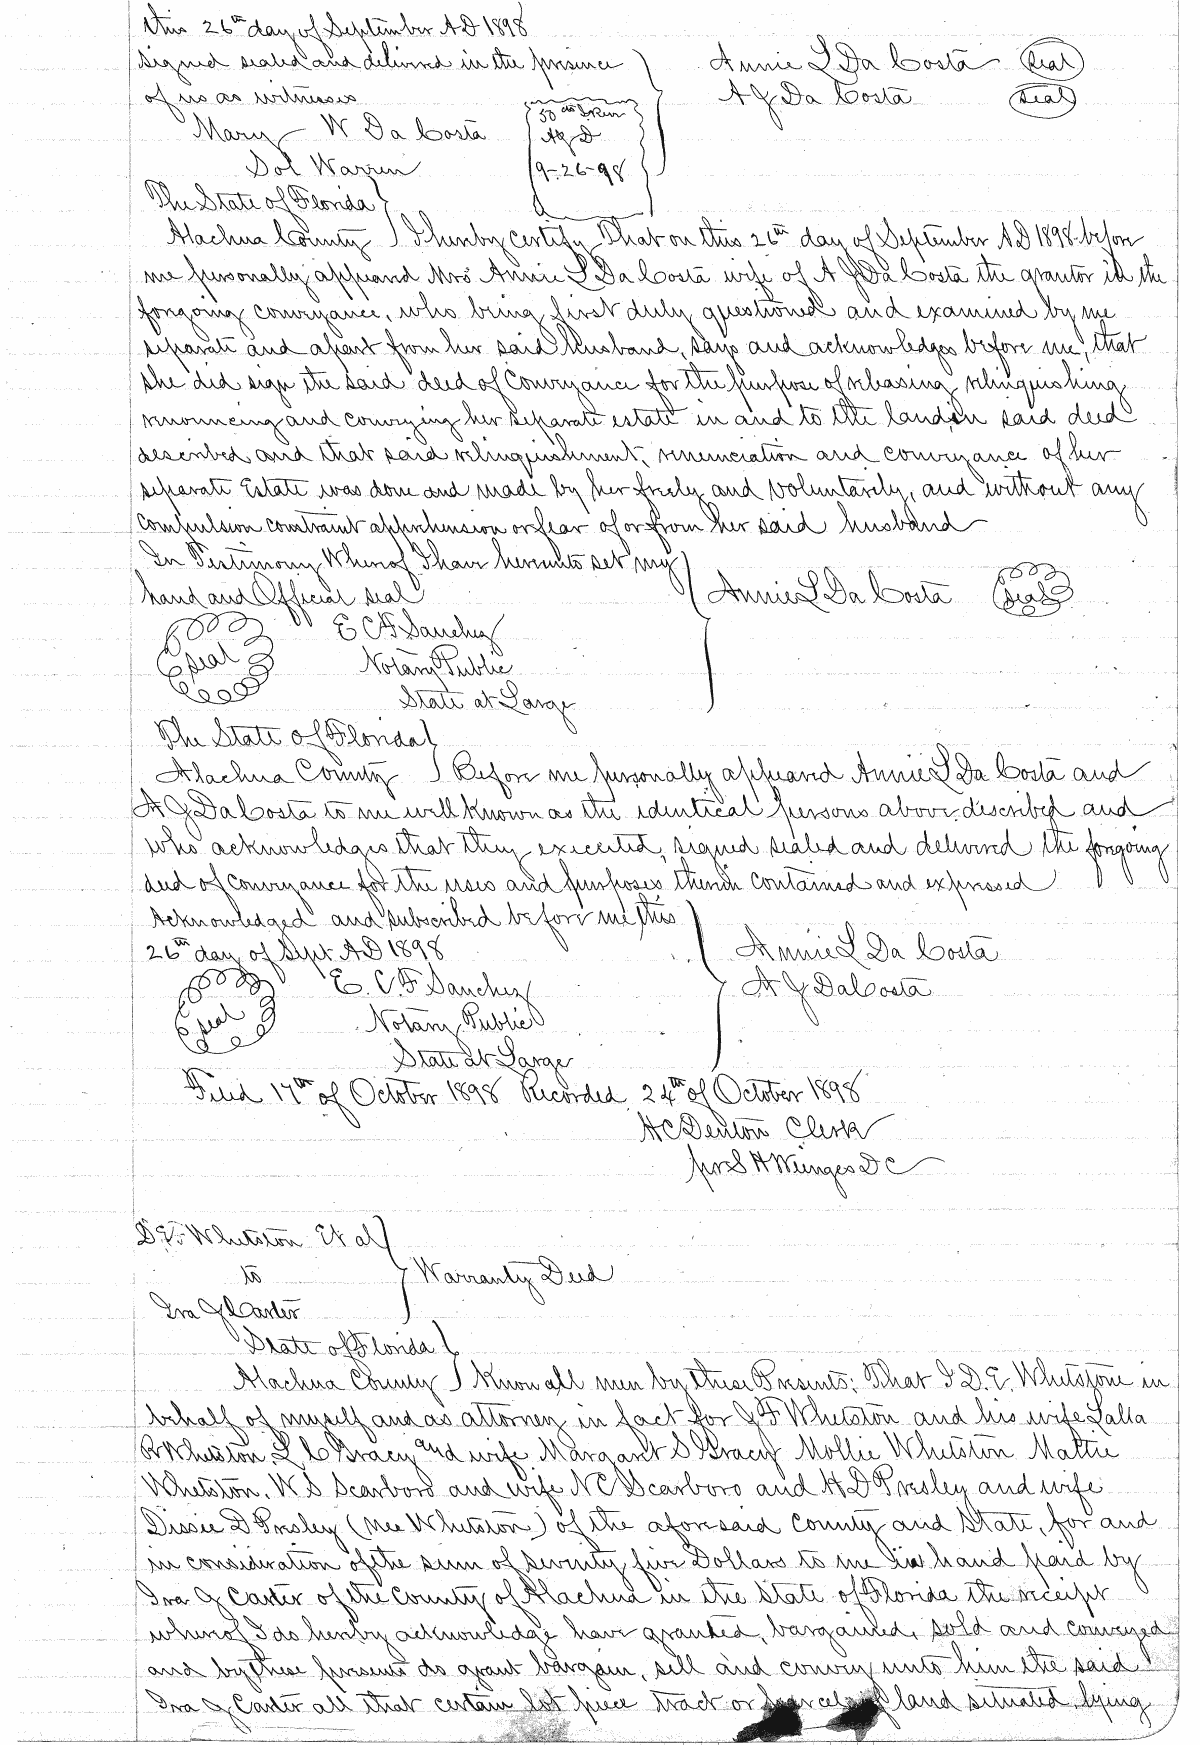 this 26th day of September AD 1898
Signed sealed and delivered in the presence
of us as witnesses
Annie L Da Costa Seal
A J Da Costa Seal
Mary W Da Costa
Sol Warren
50 cts I Rev
AJD
9-26-98
The State of Florida
Alachua County I hereby certify That on this 26th day of September AD 1898 before
me personally appeard Mrs Annie L Da Costa wife of A J Da Costa the grantor in the
forgoing conveyance, who being first duly questioned and examined by me
separate and apart from her said husband, says and acknowledges before me, that
she did sign the said deed of Conveyance for the purpose of releasing relinquishing
renouncing and conveying her separate estate in and to the land in said deed
described and that said relinquishment, renunciation and conveyance of her
separate Estate was done and made by her freely and voluntarily, and without any
compulsion constraint apprehension or fear of or from her said husband
In Testimony Whereof I have hereunto set my
hand and Official seal
Annie L Da Costa Seal
Seal
E C F Sanchez
Notary Public
State at Large
The State of Florida
Alachua County Before me personally appeared Annie L Da Costa and
A J Da Costa to me well known as the identical persons above described and
who acknowledges that they executed, signed sealed and delivered the forgoing
deed of conveyance for the uses and purposes therein contained and expressed
Acknowledged and subscribed before me this
26th day of Sept AD 1898
Annie L Da Costa
A J Da Costa
Seal
E. C. F Sanchez
Notary Public
State at Large
Filed 17th of October 1898 Recorded 24th of October 1898
H C Denton Clerk
per S H Wienges D C
D. E. Whetston Et al
to
Ira J Carter
Warranty Deed
State of Florida
Alachua County Know all men by these Presents: That I D. E. Whetstone in
behalf of myself and as attorney in fact for J F Whetston and his wife Lalla
R Whetston, L C Gracy and wife Margaret S Gracy Mollie Whetston Mattie
Whetston, W S Scarboro and wife N C Scarboro and H D Presley and wife
Dissie D Presley (nee Whetston) of the aforesaid County and State, for and
in consideration of the sum of seventy five Dollars to me in hand paid by
Ira J Carter of the County of Alachua in the State of Florida the receipt
whereof I do hereby acknowledge have granted, bargained, sold and conveyed
and by these presents do grant bargain, sell and convey unto him the said
Ira J Carter all that certain lot piece tract or parcel of land situated, lying